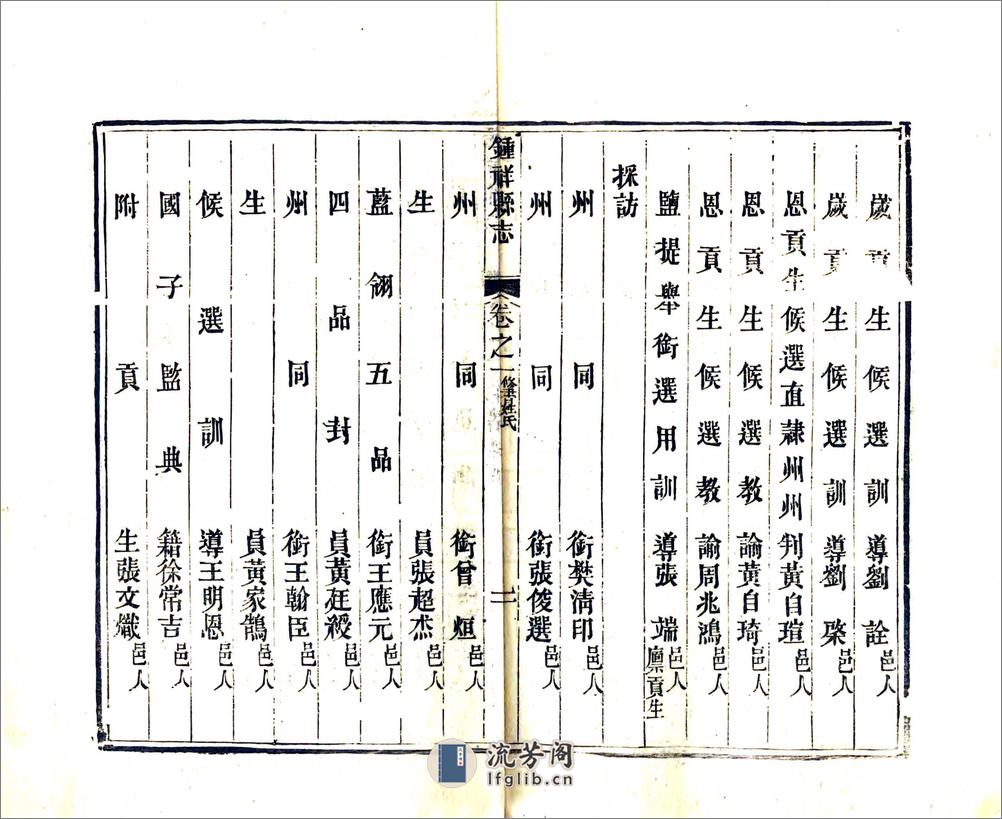 歲貢生候選訓導劉詮邑人
歲貢生候選訓導劉棨邑人
恩貢生候選直隷州州判黃自瑄邑人
恩貢生候選教諭黃自琦邑人
恩貢生候選教諭周兆鴻邑人
鹽提舉銜選用訓導張端邑人廩貢生
採訪
州同銜樊清印邑人
州同銜張俊選邑人
鍾祥縣志 卷之一 修志姓氏 二
州同銜曾烜邑人
生員張超杰邑人
藍翎五品銜王應元邑人
四品封員黃廷綬邑人
州同銜王翰臣邑人
生員黃家鵠邑人
候選訓導王明恩邑人
國子監典籍徐常吉邑人
附貢生張文熾邑人
流芳阁
lfglib.cn